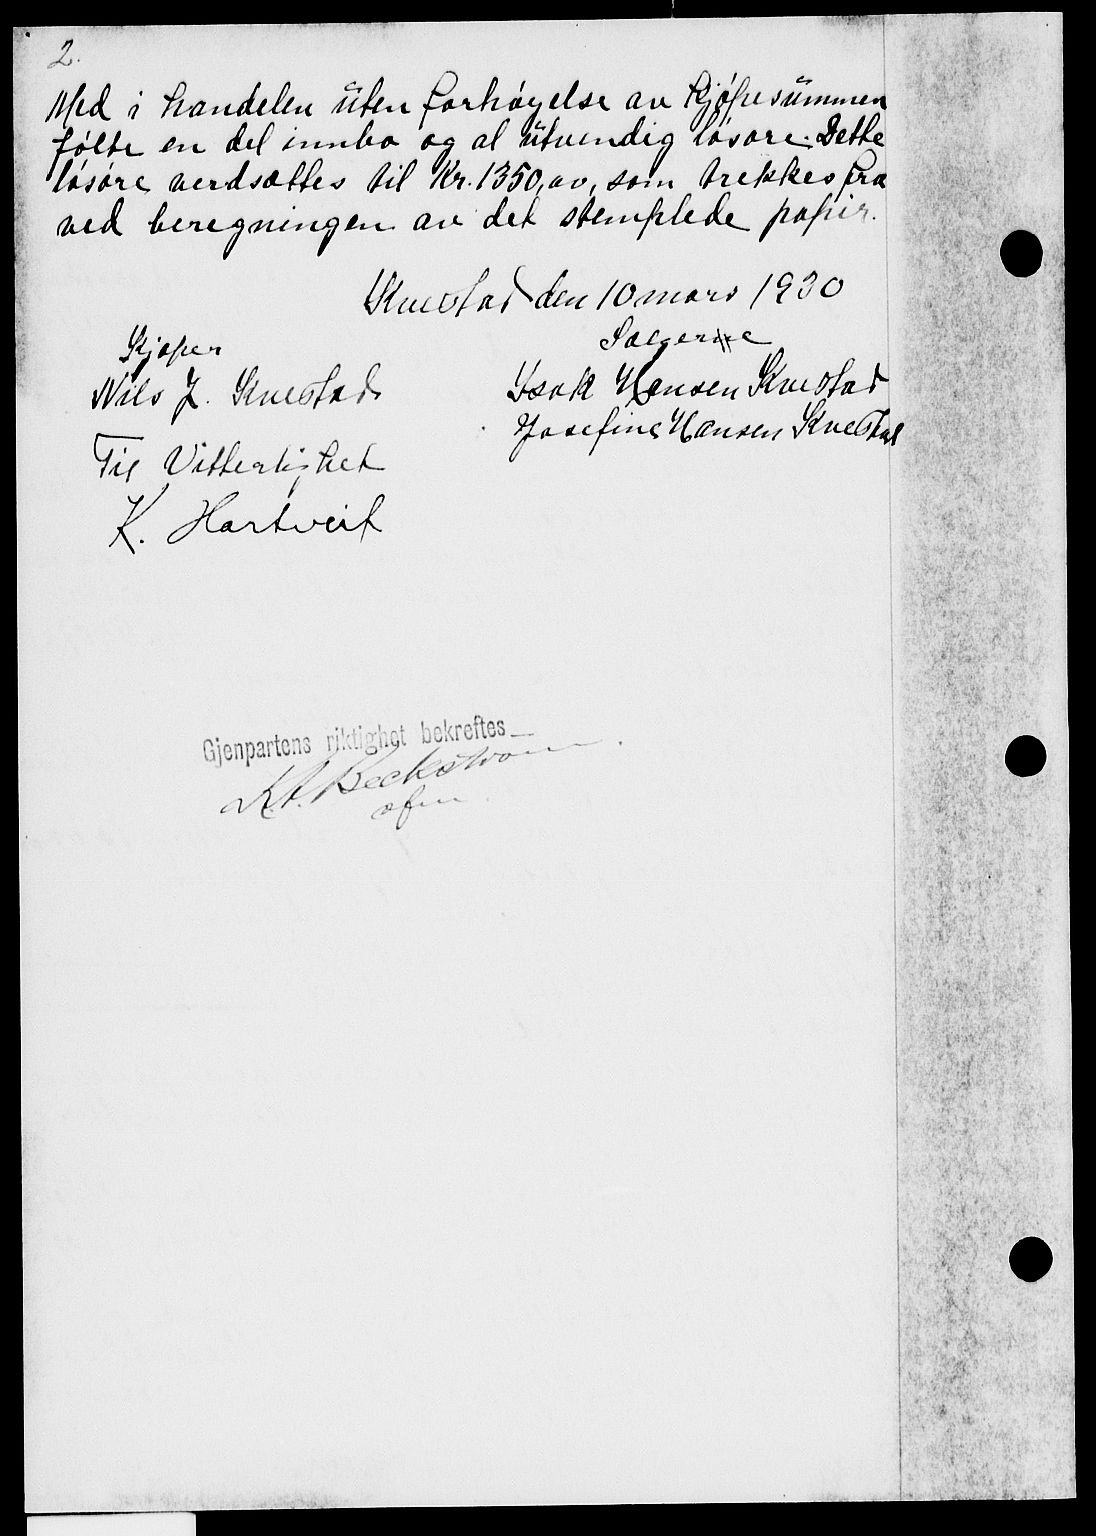 2.
Med i handelen uten forhøyelse av kjøpesummen
følte en del innbo og al utvendig løsøre. Dette
løsøre verdsættes til Kr. 1350, som trekkes fra
ved beregningen av det stemplede papir.
Knestad den 10 mars 1930
Kjøper Sælgerne
Nils J. Knestad Isak Hansen Knestad
Josefine Hansen Knestad
Til Vitterlighet
K. Hartveit
Gjenpartens riktighet bekreftes
Beckstrøm